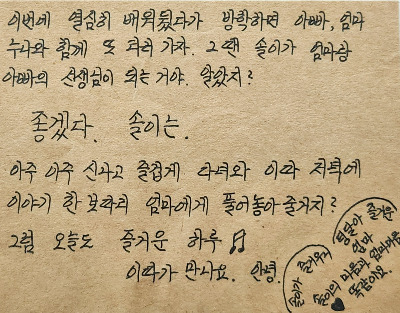 이번에 열심히 배워뒀다가 방학하면 아빠, 엄마
누나와 함께 또 타러 가자. 그땐 솔이가 엄마랑
아빠의 선생님이 되는거야. 알았지?
좋겠다. 솔이는.
아주 아주 신나고 즐겁게 다녀와 이따 저녁에
이야기 한 보따리 엄마에게 풀어놓아 줄거지?
그럼 오늘도 즐거운 하루 ♫
이따가 만나요. 안녕.
솔이가 즐거우니
덩달아 즐거운
엄마
솔이의 마음과 엄마마음
똑같아요.
♥